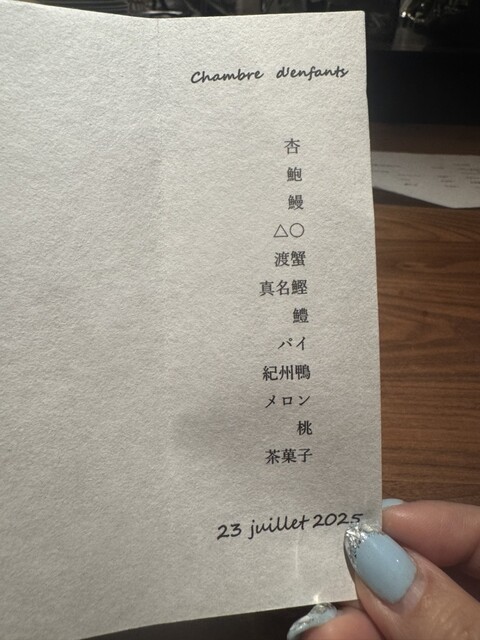 Chambre d'enfants
杏
鮑
鰻
△○
渡蟹
真名鰹
鱧
パイ
紀州鴨
メロン
桃
茶菓子
23 juillet 2025